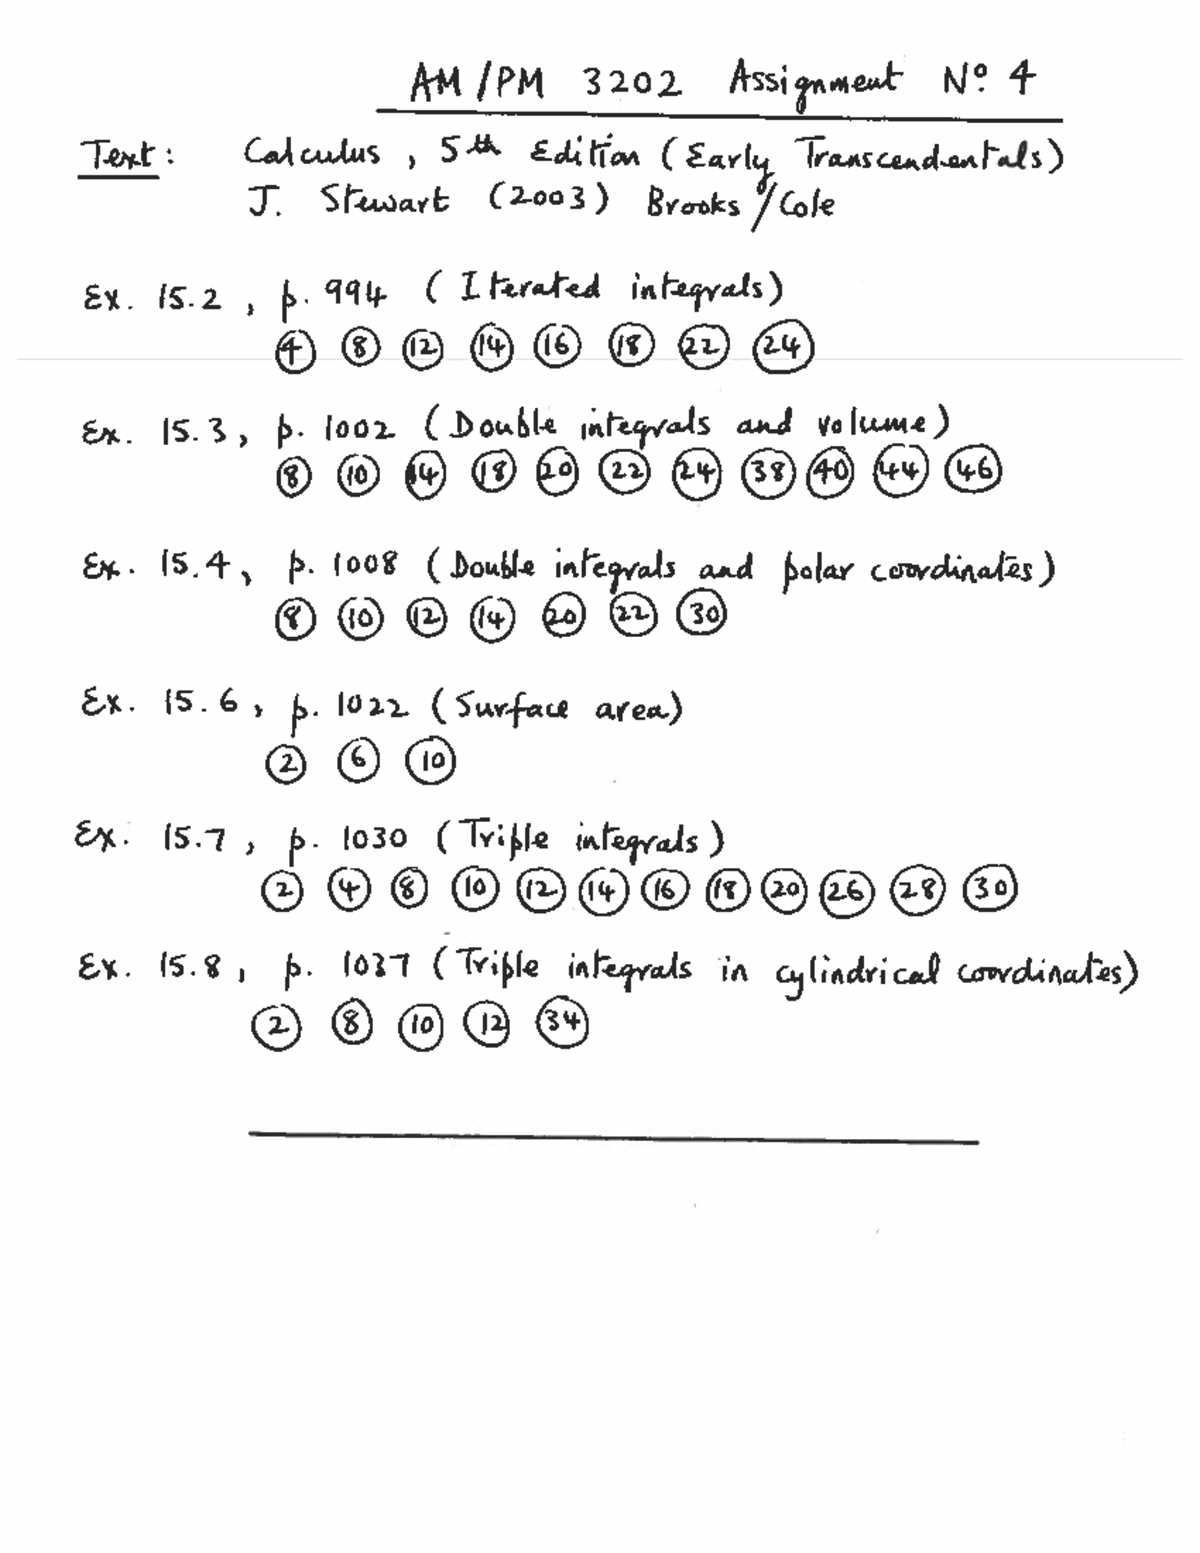 AM/PM 3202 Assignment Nº 4
Text: Calculus, 5th Edition (Early Transcendentals)
J. Stewart (2003) Brooks/Cole
Ex. 15.2, p. 994 (Iterated integrals)
4 8 12 14 16 18 22 24
Ex. 15.3, p. 1002 (Double integrals and volume)
8 10 14 18 20 22 24 38 40 44 46
Ex. 15.4, p. 1008 (Double integrals and polar coordinates)
8 10 12 14 20 22 30
Ex. 15.6, p. 1022 (Surface area)
2 6 10
Ex. 15.7, p. 1030 (Triple integrals)
2 4 8 10 12 14 16 18 20 26 28 30
Ex. 15.8, p. 1037 (Triple integrals in cylindrical coordinates)
2 8 10 12 34